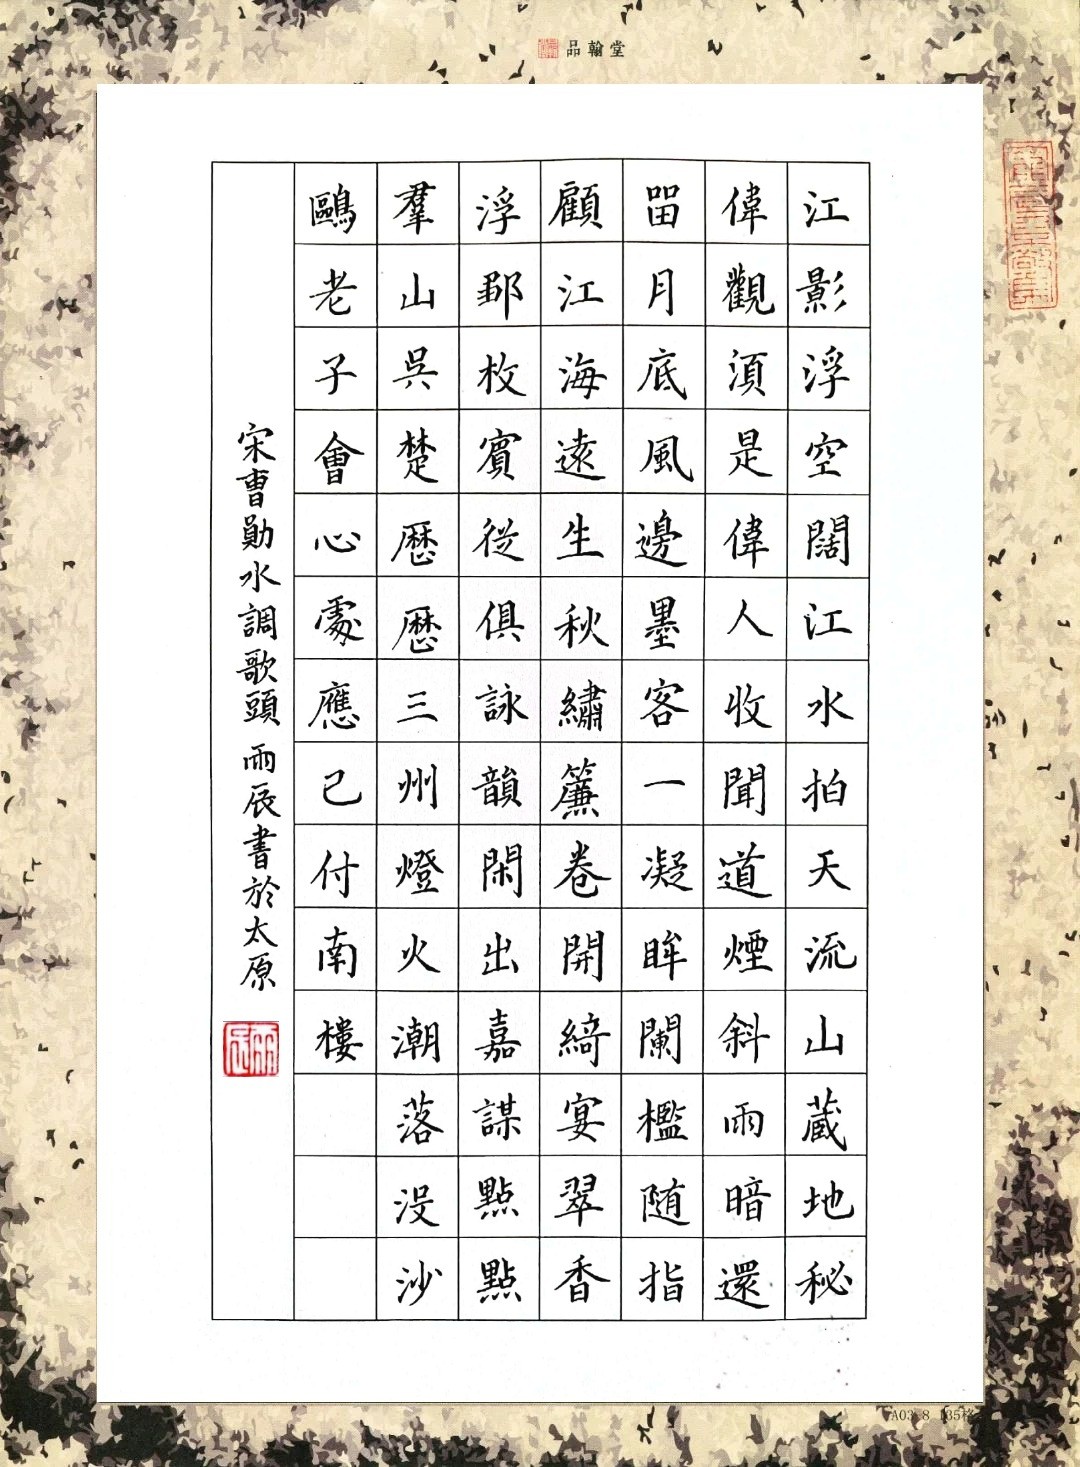 品翰堂
江影浮空闊江水拍天流山蔵地秘
偉觀湏是偉人收聞道煙斜雨暗還
畱月底風邊墨客一凝眸闌檻随指
顧江海遠生秋繡簾卷開綺宴翠香
浮鄒枚賓從俱詠韻閑出嘉謀點點
羣山吳楚歷歷三州燈火潮落沒沙
鷗老子會心處應已付南樓
宋曹勛水調歌頭 雨辰書於太原
雨辰
A03 8 135格